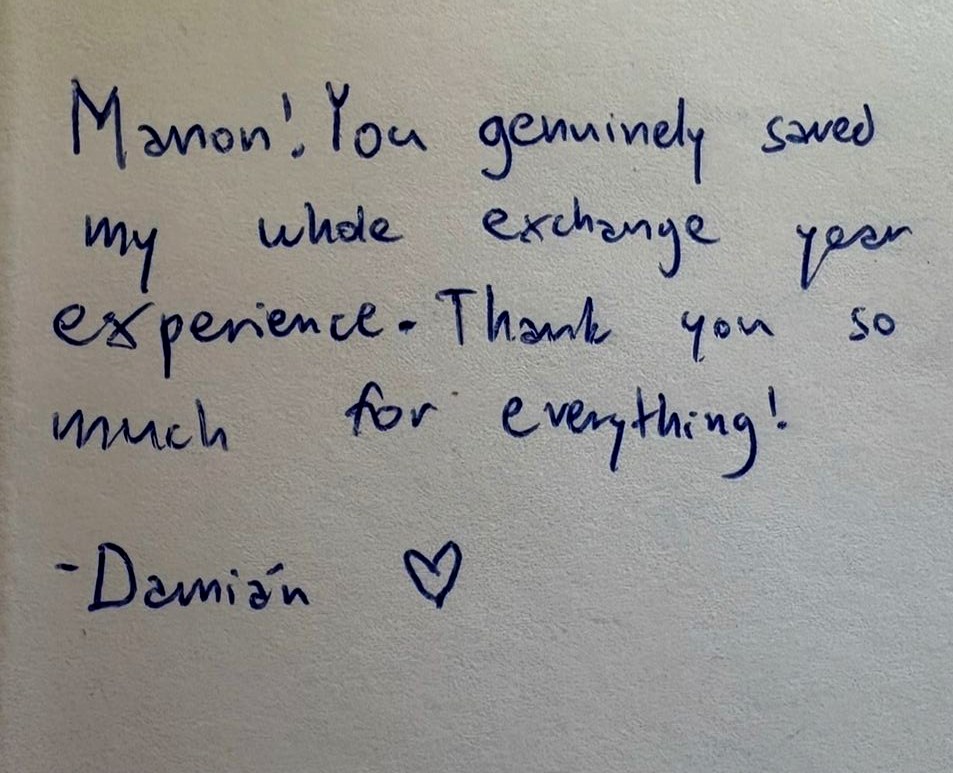 Manon! You genuinely saved
my whole exchange year
experience. Thank you so
much for everything!
-Damián ♡